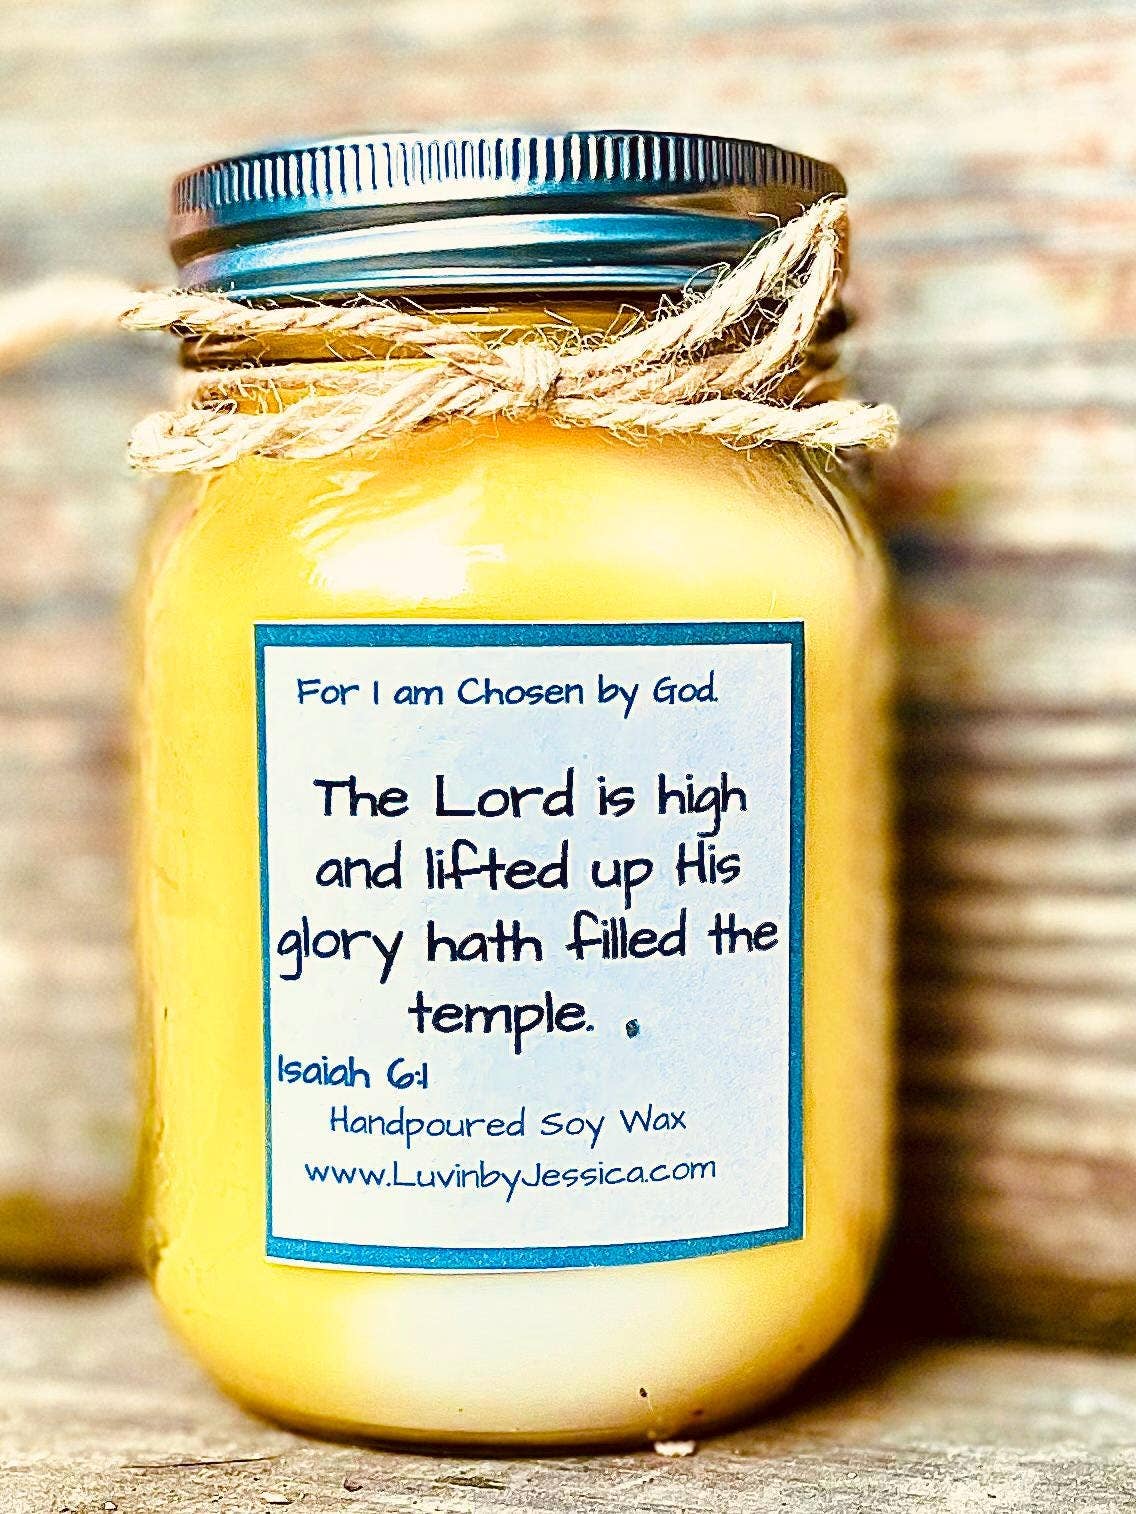 For I am Chosen by God.
The Lord is high
and lifted up His
glory hath filled the
temple. .
Isaiah 6:1
Handpoured Soy Wax
www.LuvinbyJessica.com